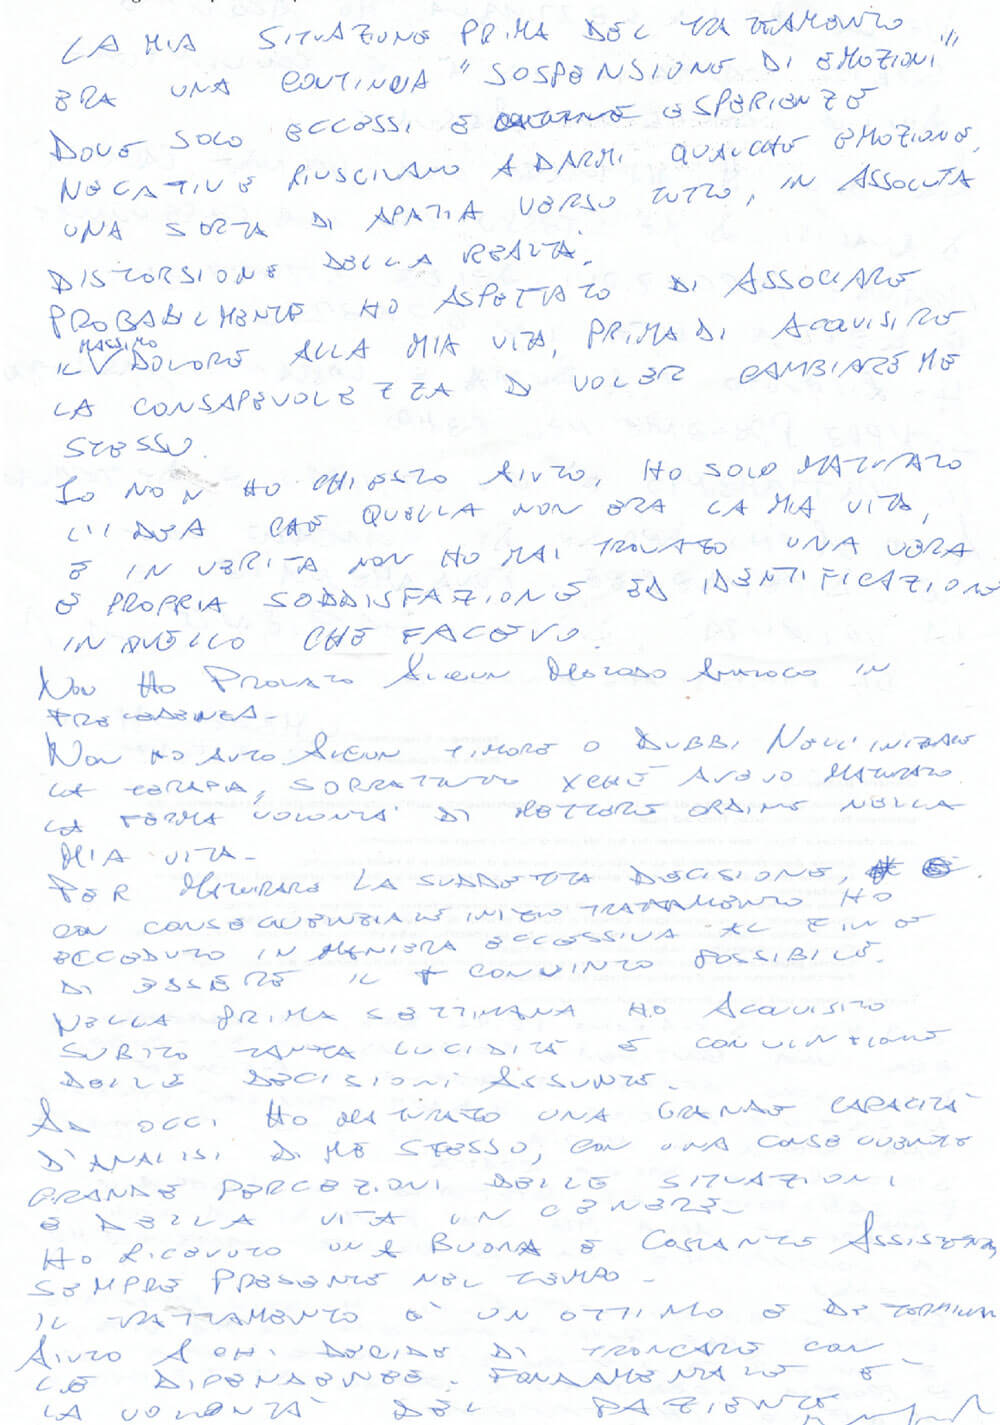 LA MIA SITUAZIONE PRIMA DEL TRATTAMENTO
ERA UNA CONTINUA "SOSPENSIONE DI EMOZIONI"
DOVE SOLO ECCESSI E ESPERIENZE
NEGATIVE RIUSCIVANO A DARMI QUALCHE EMOZIONE,
UNA SORTA DI APATIA VERSO TUTTO, IN ASSOLUTA
DISTORSIONE DELLA REALTA.
PROBABILMENTE HO ASPETTATO DI ASSOCIARE
IL MASSIMO DOLORE ALLA MIA VITA, PRIMA DI ACQUISIRE
LA CONSAPEVOLEZZA DI VOLER CAMBIARE ME
STESSO.
IO NON HO CHIESTO AIUTO, HO SOLO MATURATO
L'IDEA CHE QUELLA NON ERA LA MIA VITA,
E IN VERITA NON HO MAI TROVATO UNA VERA
E PROPRIA SODDISFAZIONE ED IDENTIFICAZIONE
IN QUELLO CHE FACEVO.
NON HO PROVATO ALCUN METODO ANALOGO IN
PRECEDENZA-
NON HO AVUTO ALCUN TIMORE O DUBBI NELL'INIZIARE
LA TERAPIA, SOPRATTUTTO XCHÉ AVEVO MATURATO
LA FERMA VOLONTA' DI METTERE ORDINE NELLA
MIA VITA-
PER MATURARE LA SUDDETTA DECISIONE,
CON CONSEQUENZIALE INIZIO TRATTAMENTO HO
ECCEDUTO IN MANIERA ECCESSIVA AL FINE
DI ESSERE IL + CONVINTO POSSIBILE.
NELLA PRIMA SETTIMANA HO ACQUISITO
SUBITO TANTA LUCIDITÀ E CONVINZIONE
DELLE DECISIONI ASSUNTE.
AD OGGI HO MATURATO UNA GRANDE CAPACITÀ
D'ANALISI DI ME STESSO, CON UNA CONSEGUENTE
GRANDE PERCEZIONI DELLE SITUAZIONI
E DELLA VITA IN GENERE-
HO RICEVUTO UNA BUONA E COSTANTE ASSISTENZA,
SEMPRE PRESENTE NEL TEMPO-
IL TRATTAMENTO E' UN OTTIMO E
AIUTO A CHI DECIDE DI TRONCARE CON
LE DIPENDENZE. FONDAMENTALE E'
LA VOLONTA' DEL PAZIENTE